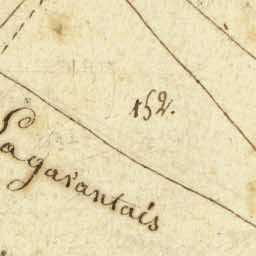 152.
Lagarantais